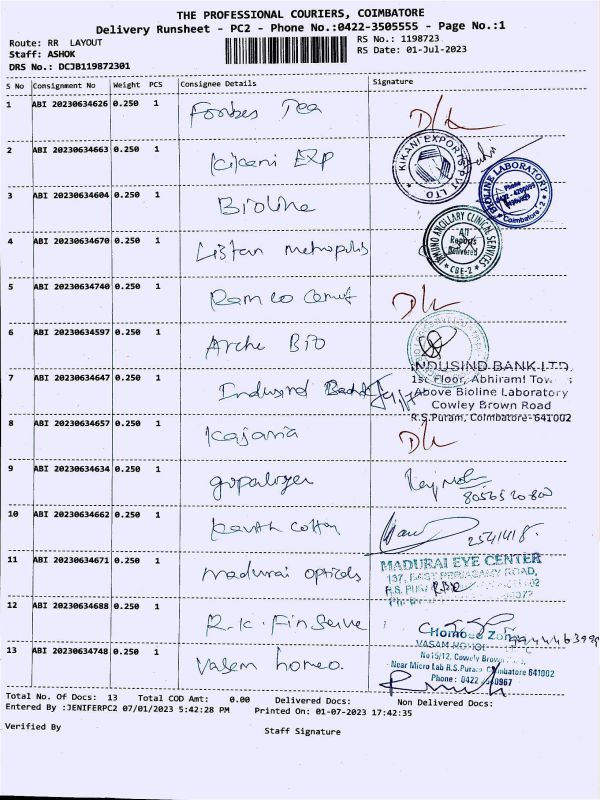 THE PROFESSIONAL COURIERS, COIMBATORE
Delivery Runsheet - PC2 - Phone No.:0422-3505555 - Page No.:1
Route: RR LAYOUT
RS No.: 1198723
Staff: ASHOK
RS Date: 01-Jul-2023
DRS No.: DCJB119872301
S No Consignment No Weight PCS Consignee Details Signature
1 ABI 20230634626 0.250 1 Forbes Tea D/L
2 ABI 20230634663 0.250 1 Kikani Exp
KIKANI EXPORTS PVT LTD
3 ABI 20230634604 0.250 1 Bioline
BIOLINE LABORATORY
Phone
Coimbatore - 2
4 ABI 20230634670 0.250 1 Listan metropolis
IMMUNO ANCILLARY CLINICAL SERVICES
All
Reports
Delivered
* CBE-2 *
5 ABI 20230634740 0.250 1 Ramco D/L
6 ABI 20230634597 0.250 1 Arche Bio
7 ABI 20230634647 0.250 1 Indusind Bank
INDUSIND BANK LTD.
1st Floor, Abhirami
Above Bioline Laboratory
Cowley Brown Road
R.S.Puram, Coimbatore-641002
8 ABI 20230634657 0.250 1 Kajaria D/L
9 ABI 20230634634 0.250 1
10 ABI 20230634662 0.250 1 cotton
2541418.
11 ABI 20230634671 0.250 1 madurai opticals
MADURAI EYE CENTER
137, EAST PERIASAMY ROAD,
12 ABI 20230634688 0.250 1 R.K. Finserve
13 ABI 20230634748 0.250 1 Vasam homeo.
Homoeo Zone
VASAM
No 15/12, Cowely Brown
Near Micro Lab R.S.Puram Coimbatore 641002
Phone : 0422
Total No. Of Docs: 13 Total COD Amt: 0.00 Delivered Docs: Non Delivered Docs:
Entered By :JENIFERPC2 07/01/2023 5:42:28 PM Printed On: 01-07-2023 17:42:35
Verified By Staff Signature